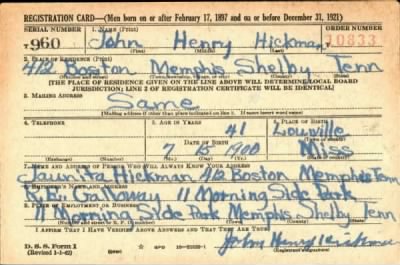 REGISTRATION CARD—(Men born on or after February 17, 1897 and on or before December 31, 1921)
SERIAL NUMBER 1. NAME (Print) ORDER NUMBER
T960 John Henry Hickman 10833
(First) (Middle) (Last)
2. PLACE OF RESIDENCE (Print)
412 Boston Memphis Shelby Tenn
(Number and street) (Town, township, village, or city) (County) (State)
[THE PLACE OF RESIDENCE GIVEN ON THE LINE ABOVE WILL DETERMINE LOCAL BOARD
JURISDICTION; LINE 2 OF REGISTRATION CERTIFICATE WILL BE IDENTICAL]
3. MAILING ADDRESS
Same
[Mailing address if other than place indicated on line 2. If same insert word same]
4. TELEPHONE 5. AGE IN YEARS 6. PLACE OF BIRTH
41 Louville
DATE OF BIRTH (Town or county)
7 15 1900 Miss
(Exchange) (Number) (Mo.) (Day) (Yr.) (State or country)
7. NAME AND ADDRESS OF PERSON WHO WILL ALWAYS KNOW YOUR ADDRESS
Jaunita Hickman 412 Boston Memphis Tenn
8. EMPLOYER'S NAME AND ADDRESS
Gallaway 11 Morning Side Park
9. PLACE OF EMPLOYMENT OR BUSINESS
11 Morning Side Park Memphis Shelby Tenn
(Number and street or R. F. D. number) (Town) (County) (State)
I AFFIRM THAT I HAVE VERIFIED ABOVE ANSWERS AND THAT THEY ARE TRUE.
D. S. S. Form 1
(Revised 1-1-42) (over) GPO John Henry Hickman